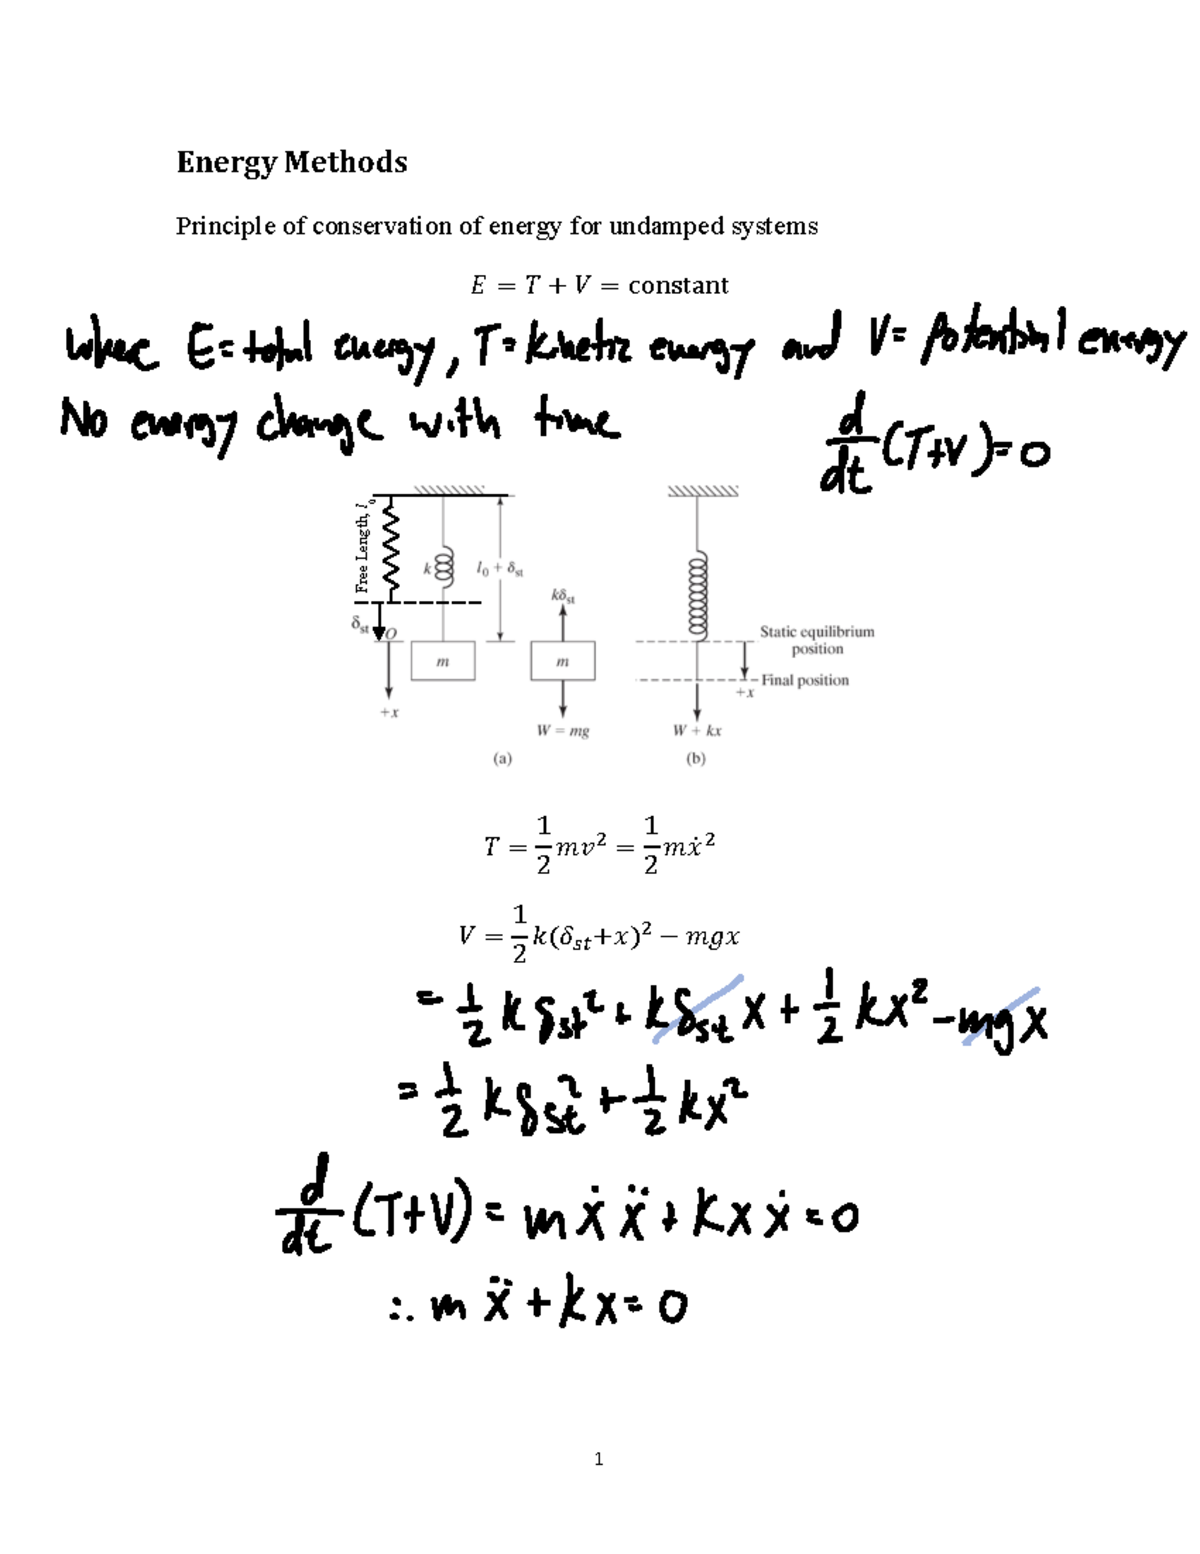 Energy Methods
Principle of conservation of energy for undamped systems
E = T + V = constant
where E = total energy, T = kinetic energy and V = potential energy
No energy change with time
d/dt (T+V) = 0
Free Length, l₀
k
l₀ + δst
δst
O
m
+x
kδst
m
W = mg
(a)
Static equilibrium
position
Final position
+x
W + kx
(b)
T = 1/2 mv² = 1/2 mẋ²
V = 1/2 k(δst+x)² − mgx
= 1/2 kδst² + kδst x + 1/2 kx² − mgx
= 1/2 kδst² + 1/2 kx²
d/dt (T+V) = mẋẍ + kxẋ = 0
∴ mẍ + kx = 0
1